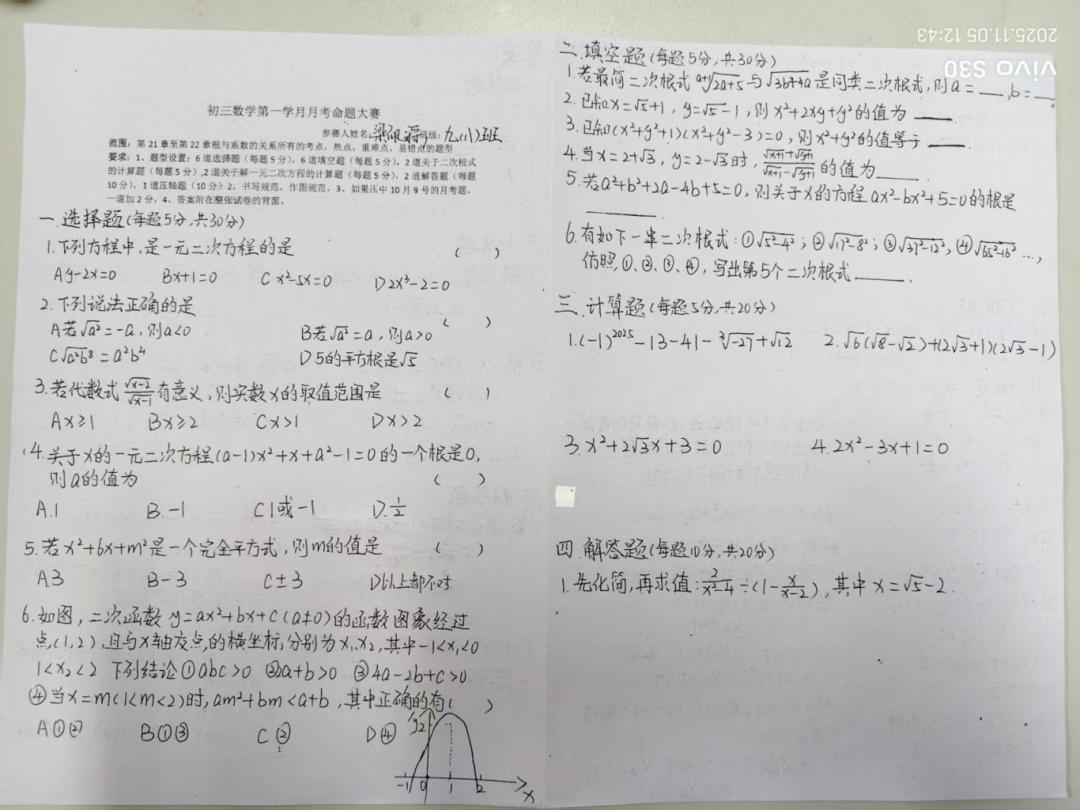 初三数学第一学月月考命题大赛
参赛人姓名: 班级: 九(1)班
范围:第21章至第22章根与系数的关系所有的考点,热点,重难点、易错点的题型
要求:1、题型设置:6道选择题(每题5分),6道填空题(每题5分),2道关于二次根式
的计算题(每题5分),2道关于解一元二次方程的计算题(每题5分),2道解答题(每题
10分),1道压轴题(10分)2、书写规范,作图规范,3、如果压中10月9号的月考题,
一道加2分,4、答案附在整张试卷的背面。
一.选择题(每题5分,共30分)
1.下列方程中,是一元二次方程的是 ( )
A y-2x=0 B x+1=0 C x²-5x=0 D 2x³-2=0
2.下列说法正确的是 ( )
A 若√a²=-a,则a<0 B 若√a²=a,则a>0
C √a²b⁸=a²b⁴ D 5的平方根是√5
3.若代数式√x-2/√x-1有意义,则实数x的取值范围是 ( )
A x≥1 B x≥2 C x>1 D x>2
4.关于x的一元二次方程(a-1)x²+x+a²-1=0的一个根是0,
则a的值为 ( )
A.1 B.-1 C 1或-1 D.1/2
5.若x²+6x+m²是一个完全平方式,则m的值是 ( )
A 3 B -3 C ±3 D 以上都不对
6.如图,二次函数y=ax²+bx+c(a≠0)的函数图象经过
点(1,2),且与x轴交点的横坐标,分别为x₁,x₂,其中-1<x₁<0
1<x₂<2 下列结论①abc>0 ②2a+b>0 ③4a-2b+c>0
④当x=m(1<m<2)时,am²+bm<a+b,其中正确的有( )
A ①② B ①③ C ② D ④
y
2
-1 0 1 2 x
2025.11.05 12:43
vivo S30
二.填空题(每题5分,共30分)
1.若最简二次根式ᵃ⁺¹√2a+5与√3b+4a是同类二次根式,则a=__,b=__
2.已知x=√5+1,y=√5-1,则x²+2xy+y²的值为____.
3.已知(x²+y²+1)(x²+y²-3)=0,则x²+y²的值等于____.
4.当x=2+√3,y=2-√3时,√x+1+√y+1/√x+1-√y+1的值为____.
5.若a²+b²+2a-4b+5=0,则关于x的方程ax²-bx²+5=0的根是
______.
6.有如下一串二次根式:①√5²-4²;②√17²-8²;③√37²-12²,④√65²-16²…,
仿照①、②、③、④,写出第5个二次根式____.
三.计算题(每题5分,共20分)
1.(-1)²⁰²⁵-|3-4|-³√-27+√12 2.√6(√8-√2)+(2√3+1)(2√3-1)
3.x²+2√3x+3=0 4.2x²-3x+1=0
四.解答题(每题10分,共20分)
1.先化简,再求值:2/x²-4÷(1-x/x-2),其中x=√5-2.